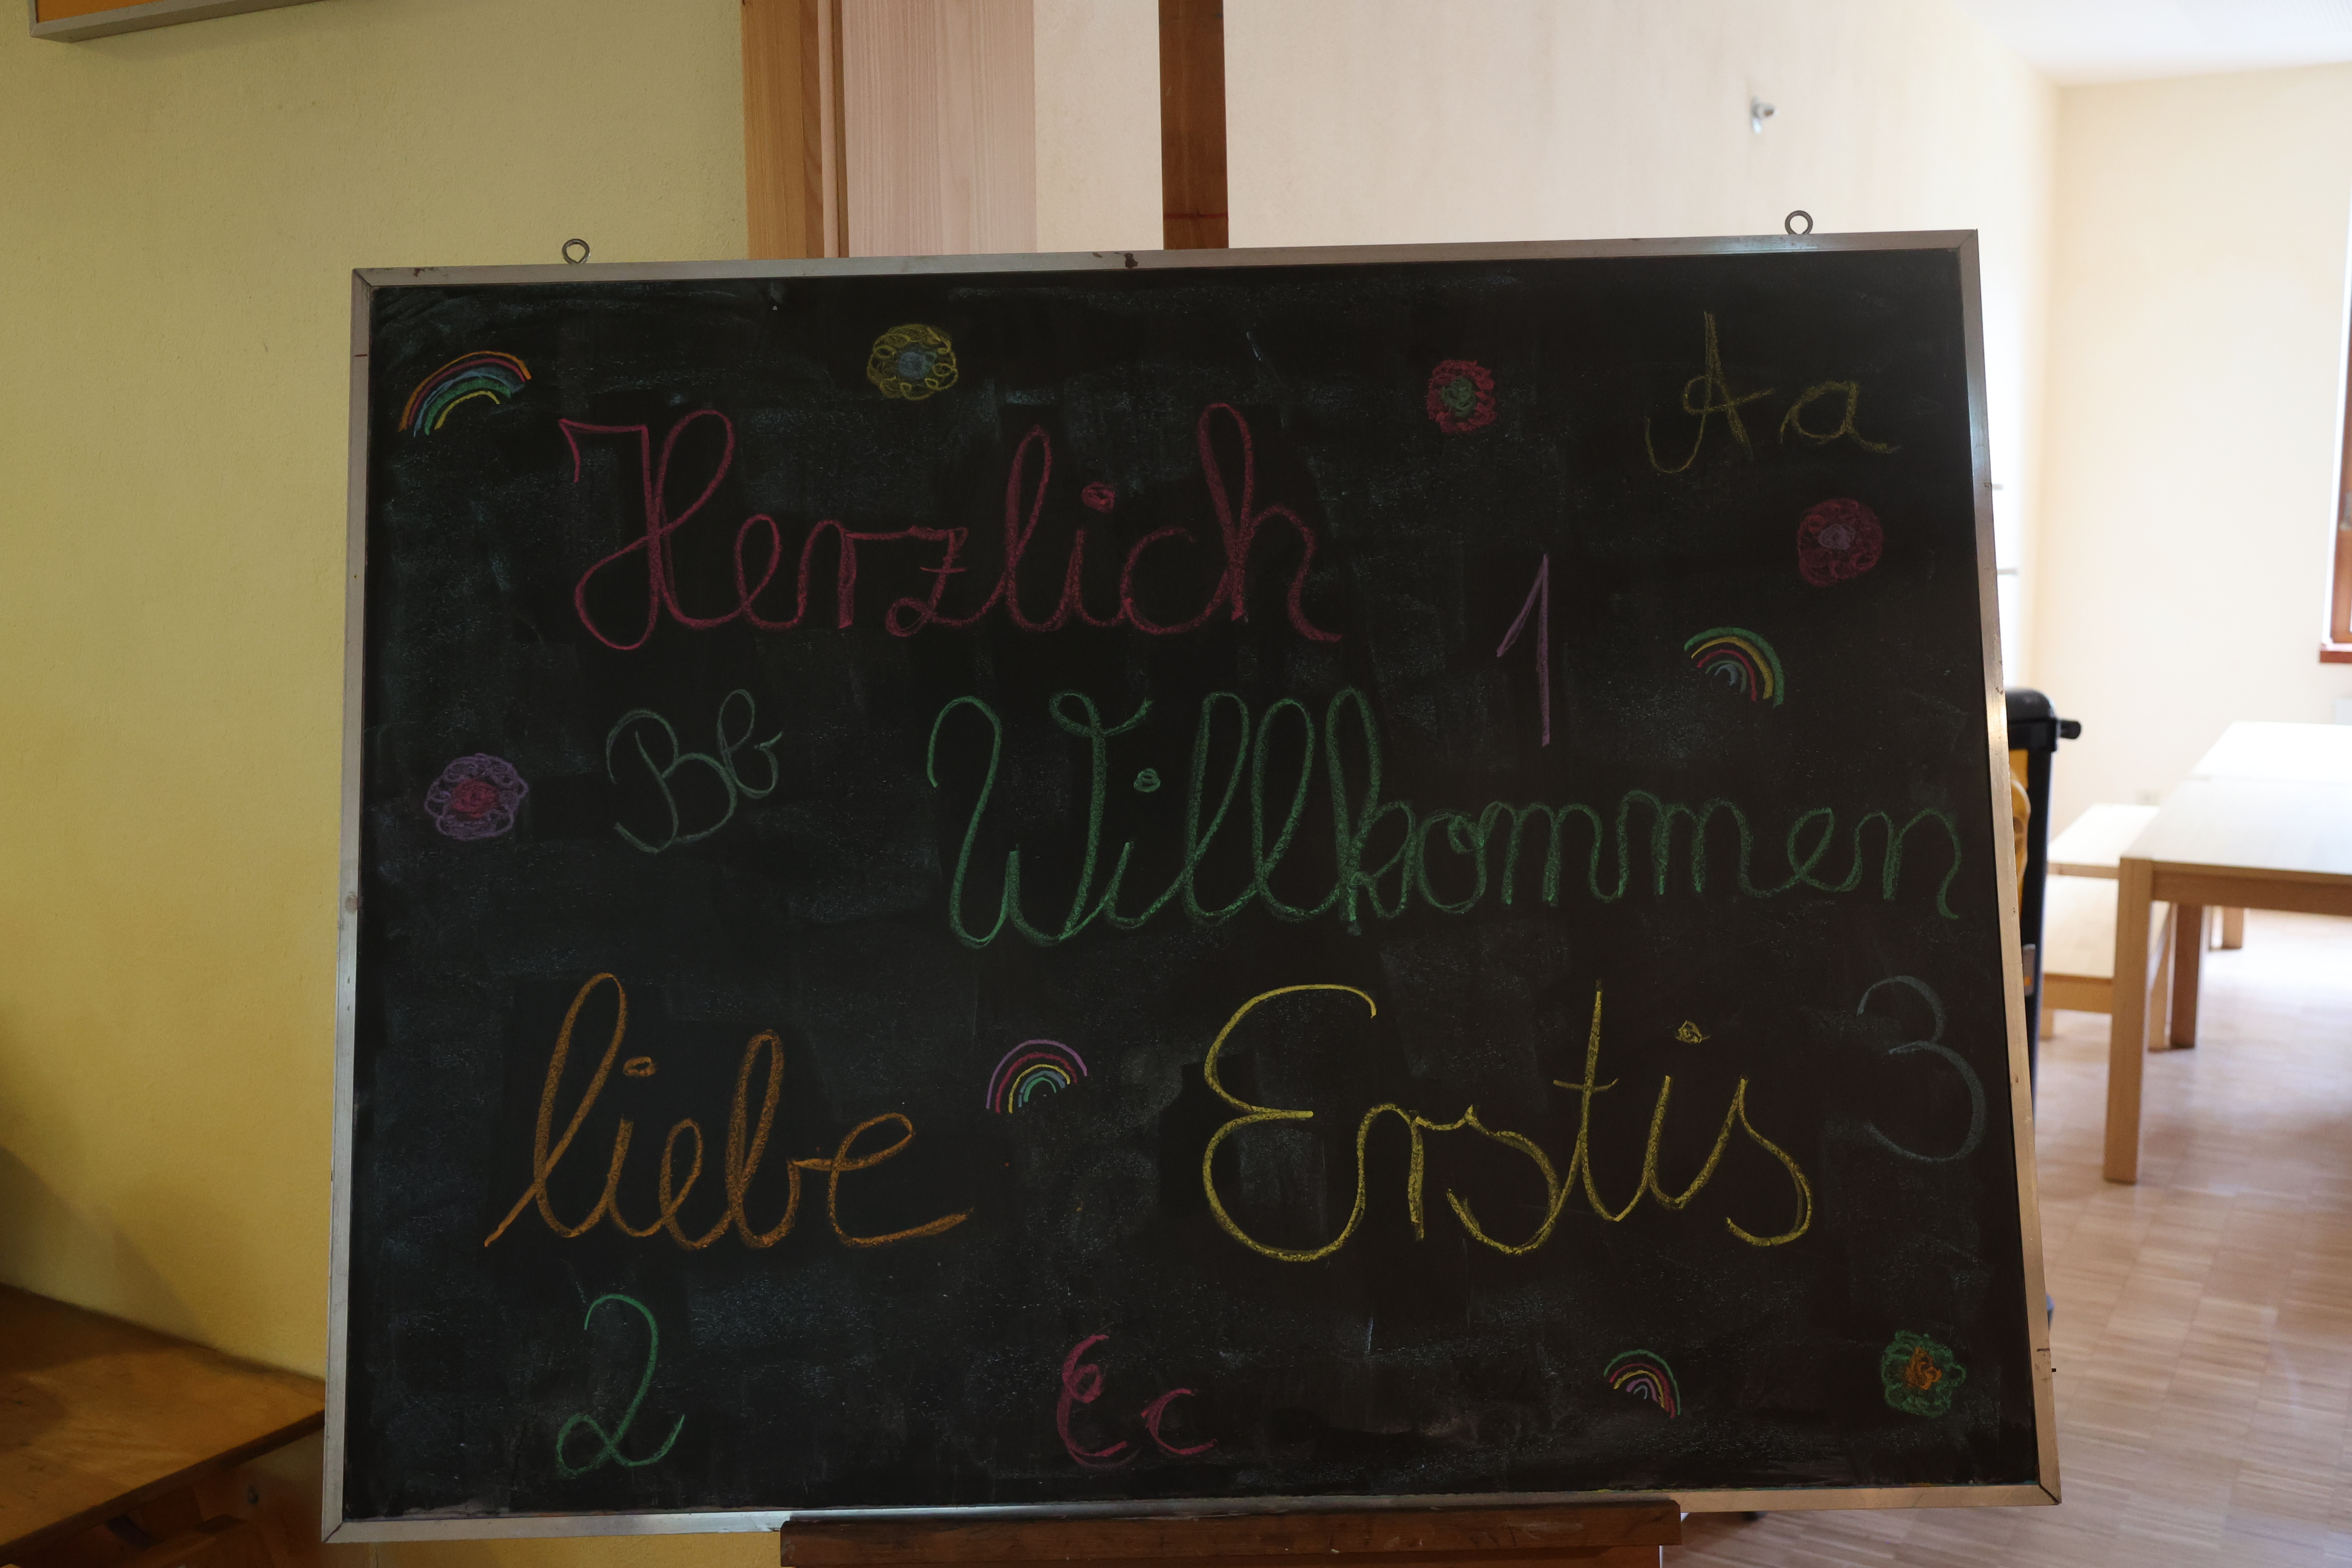 Aa
Herzlich
1
Bb
Willkommen
liebe Erstis
3
2
Cc